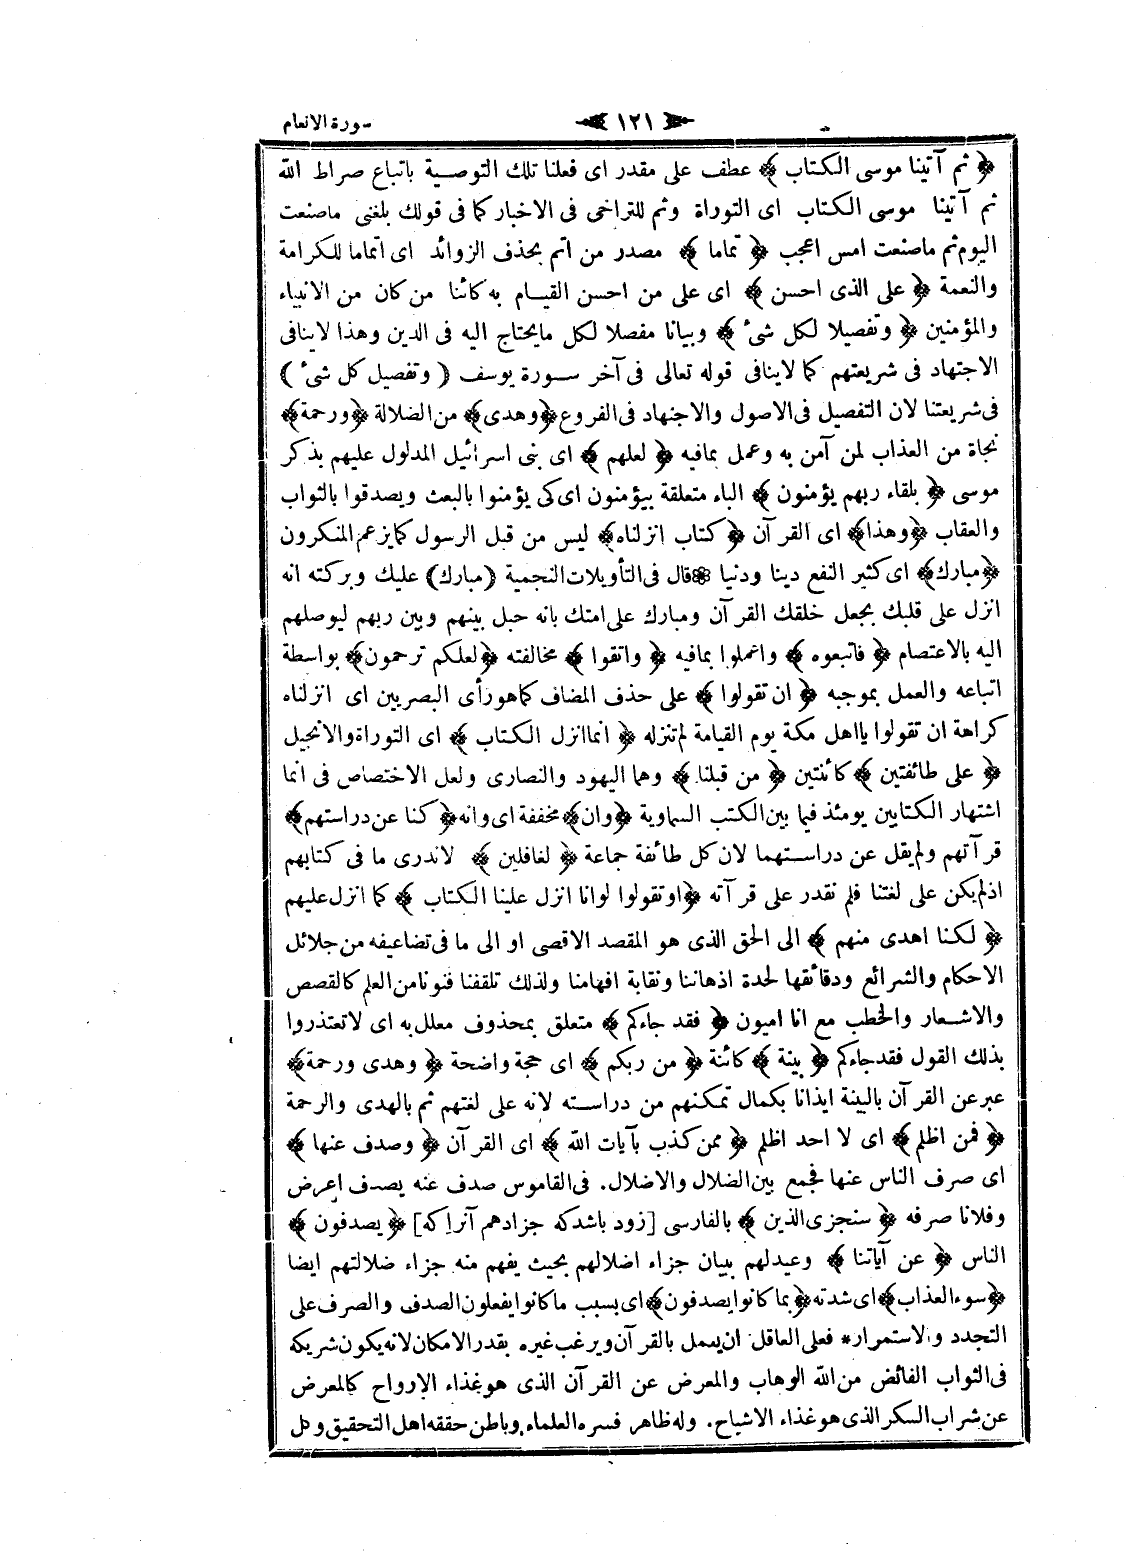 سورة الانعام ١٢١
﴿ ثم آتينا موسى الكتاب ﴾ عطف على مقدر اى فعلنا تلك التوصية باتباع صراط الله
ثم آتينا موسى الكتاب اى التوراة وثم للتراخى فى الاخبار كما فى قولك بلغنى ماصنعت
اليوم ثم ماصنعت امس اعجب ﴿ تماما ﴾ مصدر من اتم بحذف الزوائد اى اتماما للكرامة
والنعمة ﴿ على الذى احسن ﴾ اى على من احسن القيام به كائنا من كان من الانبياء
والمؤمنين ﴿ وتفصيلا لكل شئ ﴾ وبيانا مفصلا لكل مايحتاج اليه فى الدين وهذا لاينافى
الاجتهاد فى شريعتهم كما لاينافى قوله تعالى فى آخر سورة يوسف ( وتفصيل كل شئ )
فى شريعتنا لان التفصيل فى الاصول والاجتهاد فى الفروع ﴿وهدى﴾ من الضلالة ﴿ورحمة﴾
نجاة من العذاب لمن آمن به وعمل بمافيه ﴿ لعلهم ﴾ اى بنى اسرائيل المدلول عليهم بذكر
موسى ﴿ بلقاء ربهم يؤمنون ﴾ الباء متعلقة بيؤمنون اى كى يؤمنوا بالبعث ويصدقوا بالثواب
والعقاب ﴿وهذا﴾ اى القرآن ﴿كتاب انزلناه﴾ ليس من قبل الرسول كمايزعم المنكرون
﴿مبارك﴾ اى كثير النفع دينا ودنيا ❁ قال فى التأويلات النجمية (مبارك) عليك وبركته انه
انزل على قلبك بجعل خلقك القرآن ومبارك على امتك بانه حبل بينهم وبين ربهم ليوصلهم
اليه بالاعتصام ﴿ فاتبعوه ﴾ واعملوا بمافيه ﴿ واتقوا ﴾ مخالفته ﴿لعلكم ترحمون﴾ بواسطة
اتباعه والعمل بموجبه ﴿ ان تقولوا ﴾ على حذف المضاف كماهورأى البصريين اى انزلناه
كراهة ان تقولوا يااهل مكة يوم القيامة لم تنزله ﴿ انماانزل الكتاب ﴾ اى التوراة والانجيل
﴿ على طائفتين ﴾ كائنتين ﴿ من قبلنا ﴾ وهما اليهود والنصارى ولعل الاختصاص فى انما
اشتهار الكتابين يومئذ فيما بين الكتب السماوية ﴿وان﴾ مخففة اى وانه ﴿ كنا عن دراستهم﴾
قرآتهم ولم يقل عن دراستهما لان كل طائفة جماعة ﴿ لغافلين ﴾ لاندرى ما فى كتابهم
اذلم يكن على لغتنا فلم نقدر على قرآته ﴿اوتقولوا لوانا انزل علينا الكتاب ﴾ كما انزل عليهم
﴿ لكنا اهدى منهم ﴾ الى الحق الذى هو المقصد الاقصى او الى ما فى تضاعيفه من جلائل
الاحكام والشرائع ودقائقها لحدة اذهاننا ونقابة افهامنا ولذلك تلقفنا فنونا من العلم كالقصص
والاشعار والخطب مع انا اميون ﴿ فقد جاءكم ﴾ متعلق بمحذوف معلل به اى لاتعتذروا
بذلك القول فقد جاءكم ﴿ بينة ﴾ كائنة ﴿ من ربكم ﴾ اى حجة واضحة ﴿ وهدى ورحمة﴾
عبر عن القرآن بالبينة ايذانا بكمال تمكنهم من دراسته لانه على لغتهم ثم بالهدى والرحمة
﴿ فمن اظلم ﴾ اى لا احد اظلم ﴿ ممن كذب بآيات الله ﴾ اى القرآن ﴿ وصدف عنها ﴾
اى صرف الناس عنها فجمع بين الضلال والاضلال. فى القاموس صدف عنه يصدف اعرض
وفلانا صرفه ﴿ سنجزى الذين ﴾ بالفارسى [زود باشدكه جزادهم آنراكه] ﴿ يصدفون ﴾
الناس ﴿ عن آياتنا ﴾ وعيدلهم ببيان جزاء اضلالهم بحيث يفهم منه جزاء ضلالتهم ايضا
﴿سوء العذاب﴾ اى شدته ﴿بماكانوا يصدفون﴾ اى بسبب ماكانوا يفعلون الصدف والصرف على
التجدد والاستمرار* فعلى العاقل ان يعمل بالقرآن ويرغب غيره بقدر الامكان لانه يكون شريكه
فى الثواب الفائض من الله الوهاب والمعرض عن القرآن الذى هو غذاء الارواح كالمعرض
عن شراب السكر الذى هو غذاء الاشباح. وله ظاهر فسره العلماء وباطن حققه اهل التحقيق وكل